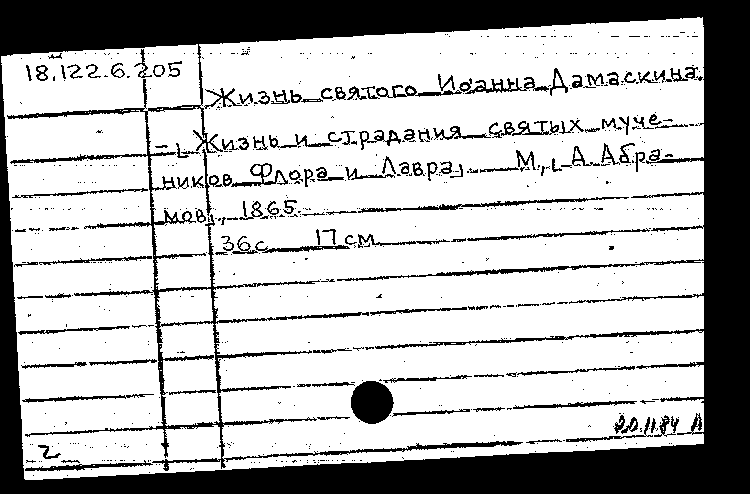 18,122.6.205
Жизнь святого Иоанна Дамаскина.
– Жизнь и страдания святых муче-
ников Флора и Лавра, М., А. Абра-
мов, 1865.
36с 17 см
20.11.84 Л
2